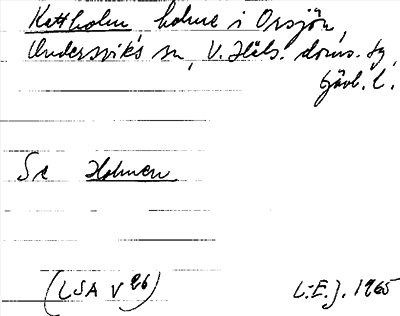 Kattholm holme i Orsjön,
Undersviks sn, V. Häls. doms. sg,
Gävl. l.
Se Holmen
(LSA V 96) L.E.J. 1965